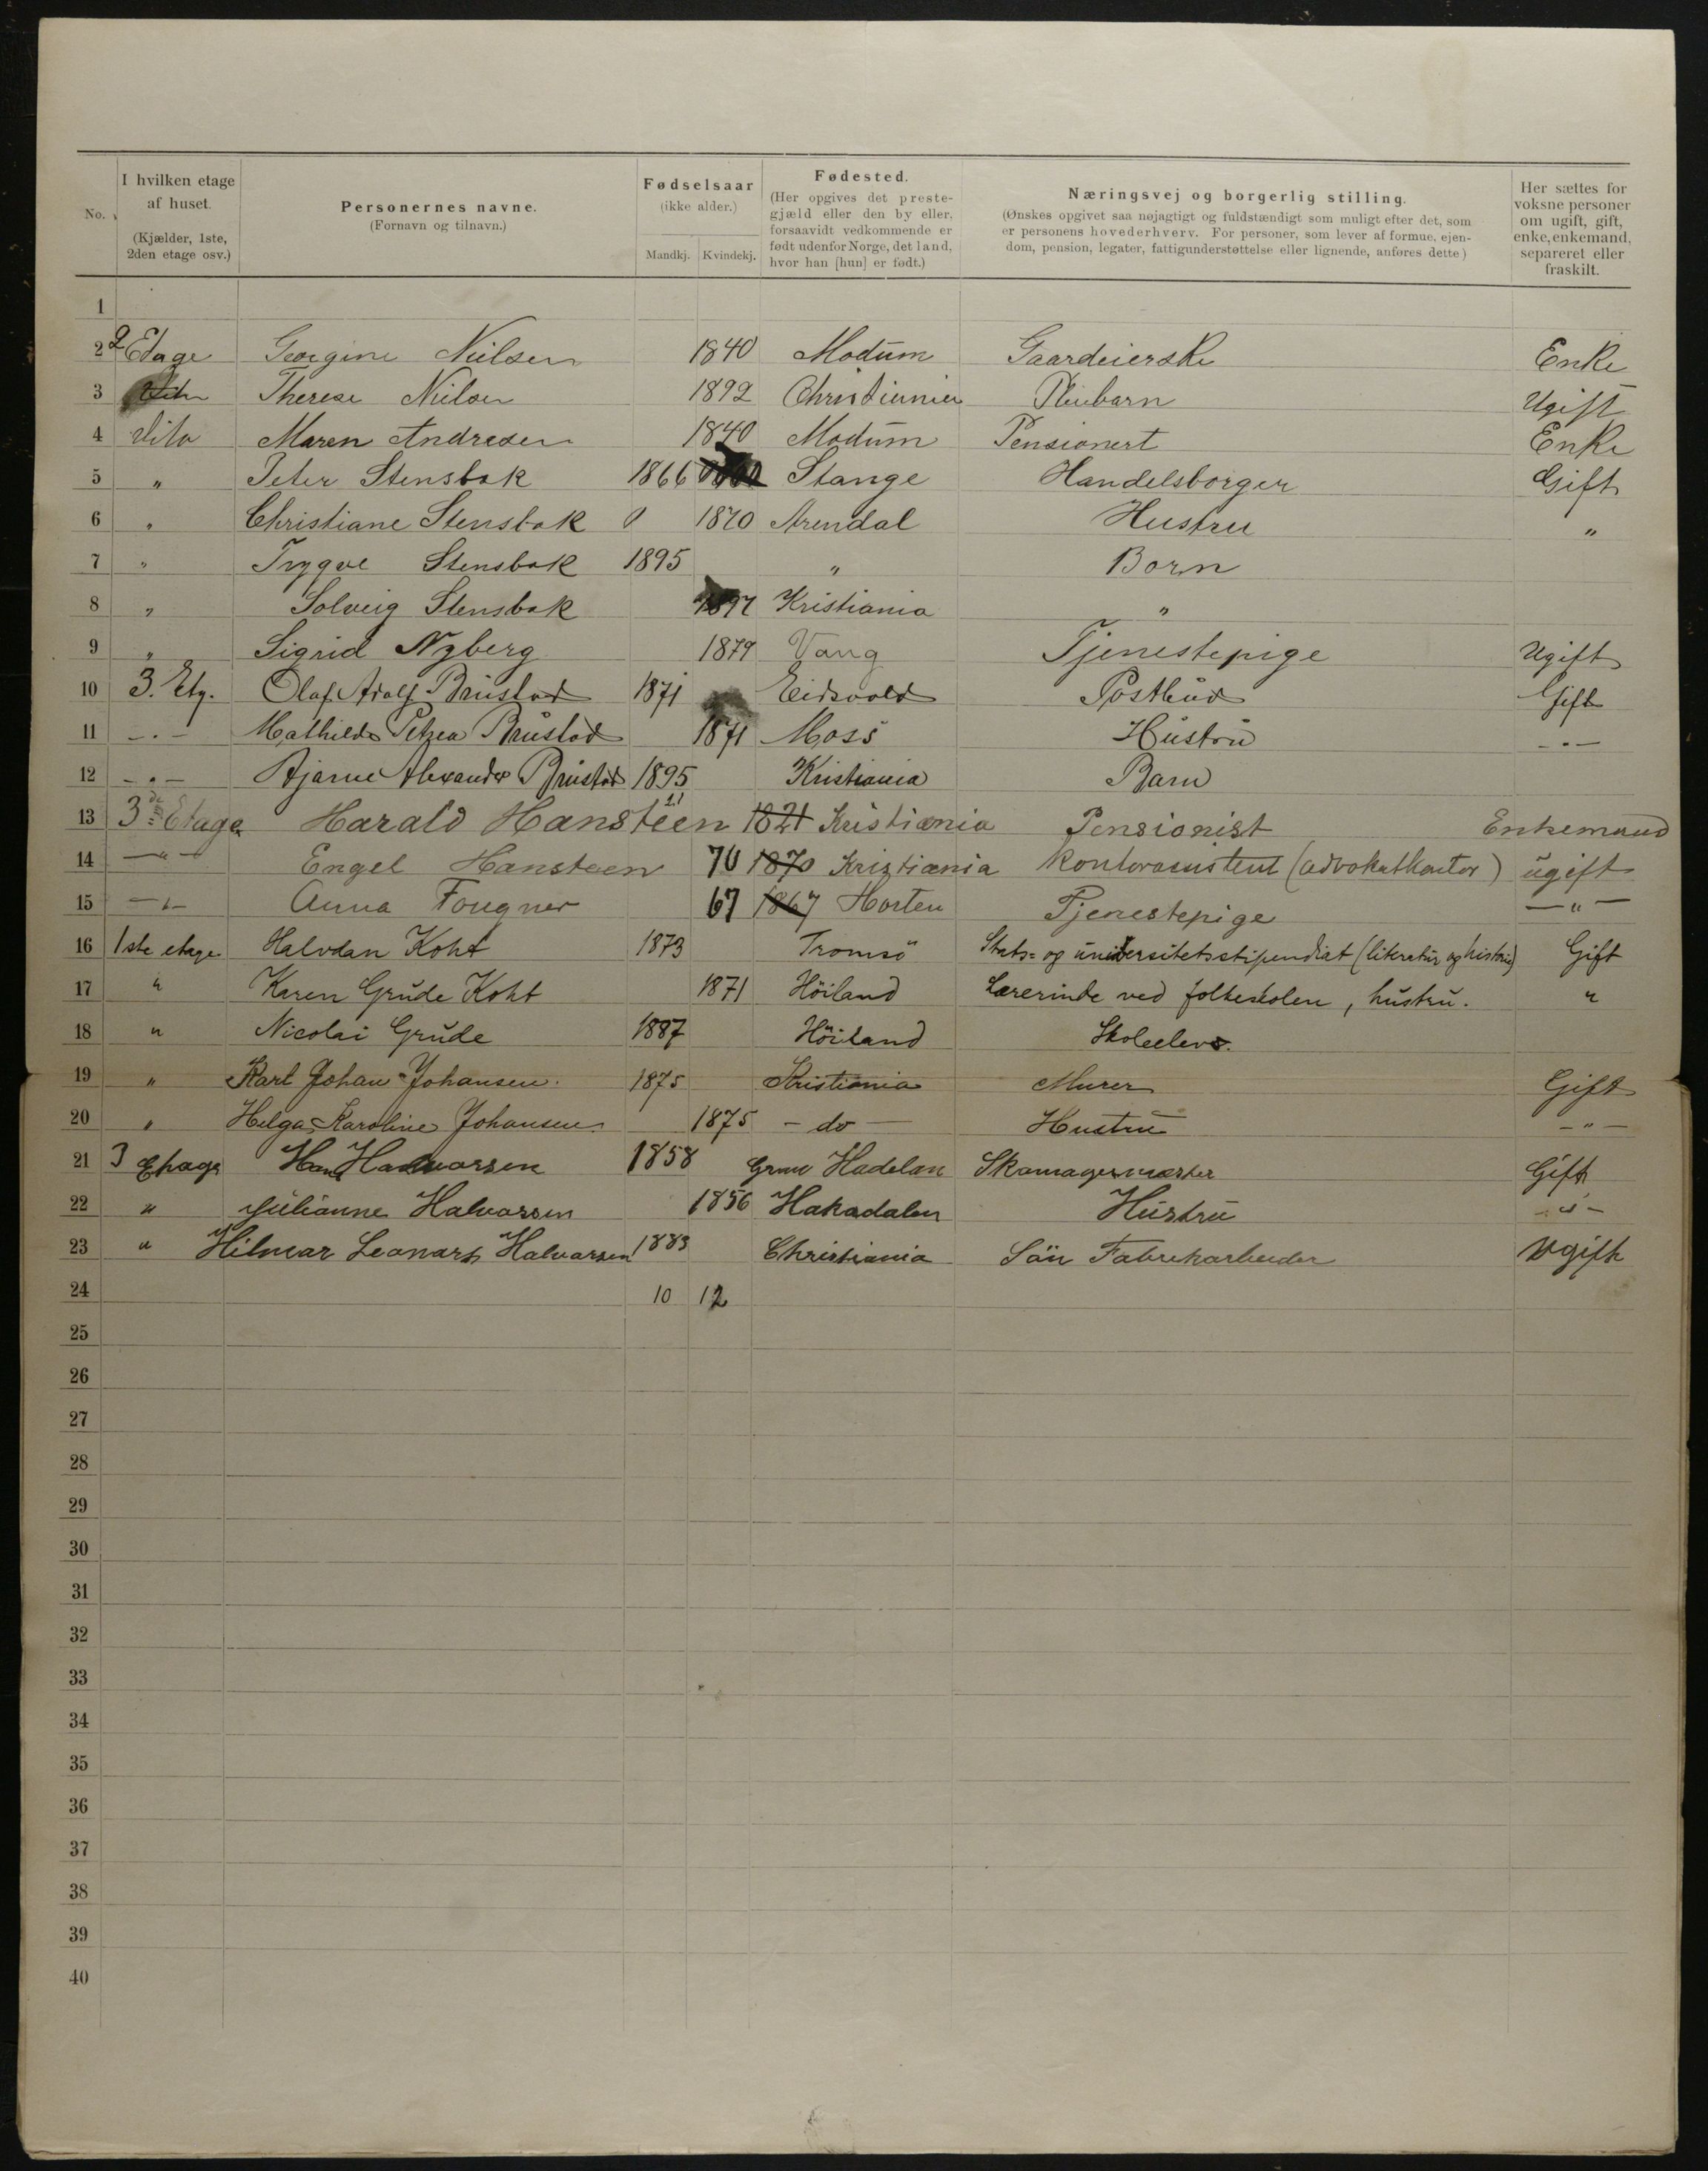 No. I hvilken etage af huset. (Kjælder, 1ste, 2den etage osv.) Personernes navne. (Fornavn og tilnavn.) Fødselsaar (ikke alder.) Mandkj. Kvindekj. Fødested. (Her opgives det prestegjæld eller den by eller, forsaavidt vedkommende er født udenfor Norge, det land, hvor han [hun] er født.) Næringsvej og borgerlig stilling. (Ønskes opgivet saa nøjagtigt og fuldstændigt som muligt efter det, som er personens hovederhverv. For personer, som lever af formue, ejendom, pension, legater, fattigunderstøttelse eller lignende, anføres dette) Her sættes for voksne personer om ugift, gift, enke, enkemand, separeret eller fraskilt.
1
2 2 Etage Georgine Nielsen 1840 Modum Gaardeierske Enke
3 Therese Nielsen 1892 Christiania Pleiebarn Ugift
4 dito Maren Andresen 1840 Modum Pensionert Enke
5 " Peter Stensbak 1866 Stange Handelsborger Gift
6 " Christiane Stensbak 1870 Arendal Hustru "
7 " Trygve Stensbak 1895 " Born
8 " Solveig Stensbak 1897 Kristiania "
9 " Sigrid Nyberg 1879 Vang Tjenestepige Ugift
10 3. Etg. Olaf Adolf Brustad 1871 Eidsvold Postbud Gift
11 - " - Mathilde Petrea Brustad 1871 Moss Hustru - " -
12 - " - Bjarne Alexander Brustad 1895 Kristiania Barn
13 3de Etage Harald Hansteen 21 1821 Kristiania Pensionist Enkemand
14 - " - Engel Hansteen 70 1870 Kristiania Kontorassistent (advokatkontor) ugift
15 - " - Anna Fougner 67 1867 Horten Tjenestepige - " -
16 1ste etage Halvdan Koht 1873 Tromsö Stats- og universitetsstipendiat (literatur og historie) Gift
17 " Karen Grude Koht 1871 Höiland Lærerinde ved folkeskolen, hustru. "
18 " Nicolai Grude 1887 Höiland Skoleelev.
19 " Karl Johan Johansen. 1875 Kristiania Murer Gift
20 " Helga Karoline Johansen. 1875 - do - Hustru - " -
21 3 Etage Hans Halvorsen 1858 Gran Hadelan Skomagermester Gift
22 " Julianne Halvorsen 1856 Hakadalen Hustru - " -
23 " Hilmar Leonard Halvorsen 1883 Christiania Sön Fabrikarbeider Ugift
24 10 12
25
26
27
28
29
30
31
32
33
34
35
36
37
38
39
40